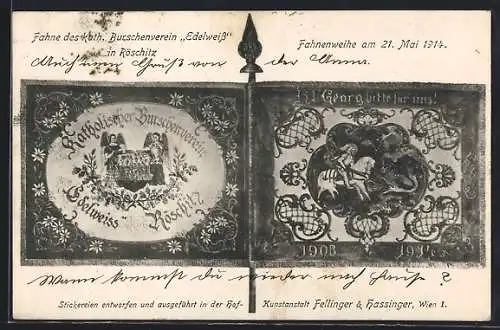 Fahne des Kath. Burschenverein „Edelweiß"
in Röschitz
Fahnenweihe am 21. Mai 1914.
Auch einen Gruß von der Anna.
Katholischer Burschenverein
"Edelweiss"
Röschitz
Hl. Georg bitte für uns!
1908
Wann kommst du wieder nach Hause ?
Stickereien entworfen und ausgeführt in der Hof-Kunstanstalt Fellinger & Hassinger, Wien I.